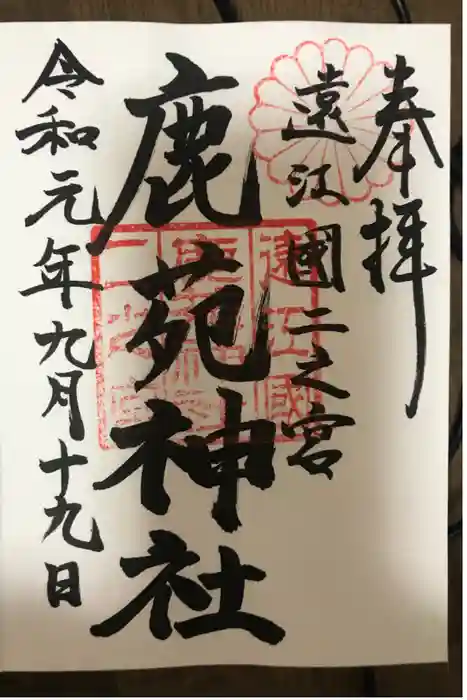 奉拝
遠江國二之宮
鹿苑神社
令和元年九月十九日